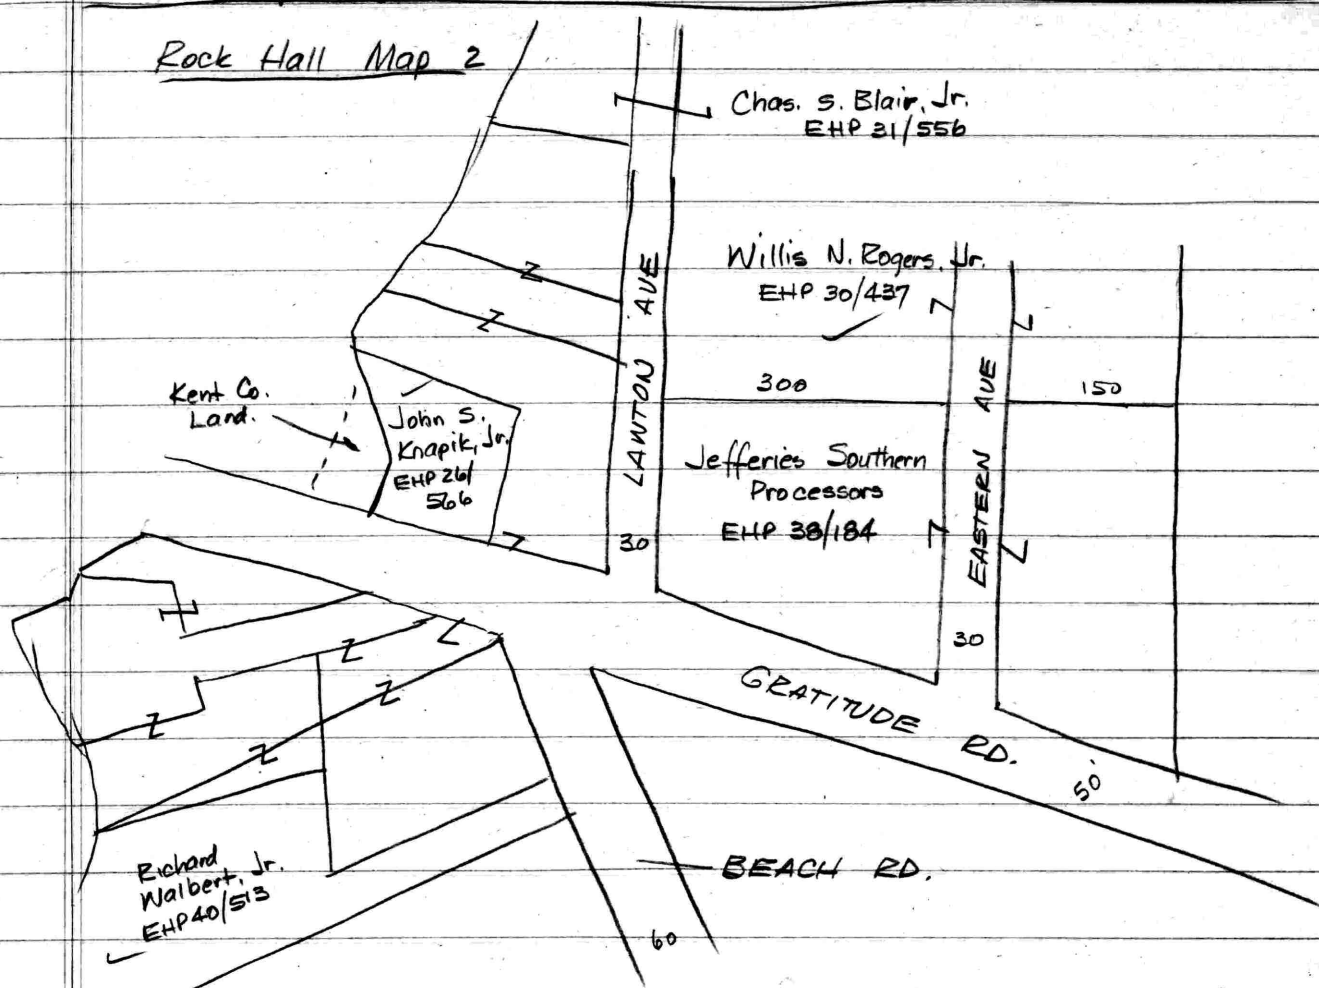 Rock Hall Map 2
Chas. S. Blair, Jr.
EHP 31/556
Willis N. Rogers, Jr.
EHP 30/437
LAWTON AVE
EASTERN AVE
300
150
Kent Co.
Land.
John S.
Knapik, Jr.
EHP 26/
566
Jefferies Southern
Processors
EHP 38/184
30
30
GRATITUDE RD.
50'
Richard
Walbert, Jr.
EHP 40/513
BEACH RD.
60